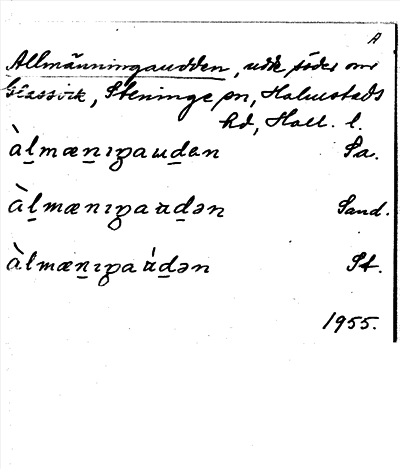 A
Allmänningaudden, udde söder om
Glassvik, Steninge sn, Halmstads
hd, Hall. l.
àl̲mæn̲ıŋaud̲ən Sa.
àl̲mænıŋaud̲ən Sand.
àlmæn̲ıŋaúd̲ən St.
1955.